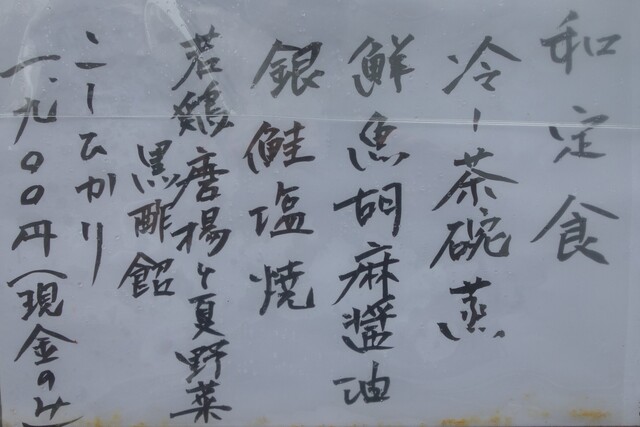 和定食
冷し茶碗蒸
鮮魚胡麻醬油
銀鮭塩焼
若鶏唐揚と夏野菜
黒酢餡
こしひかり
一、九〇〇円(現金のみ)